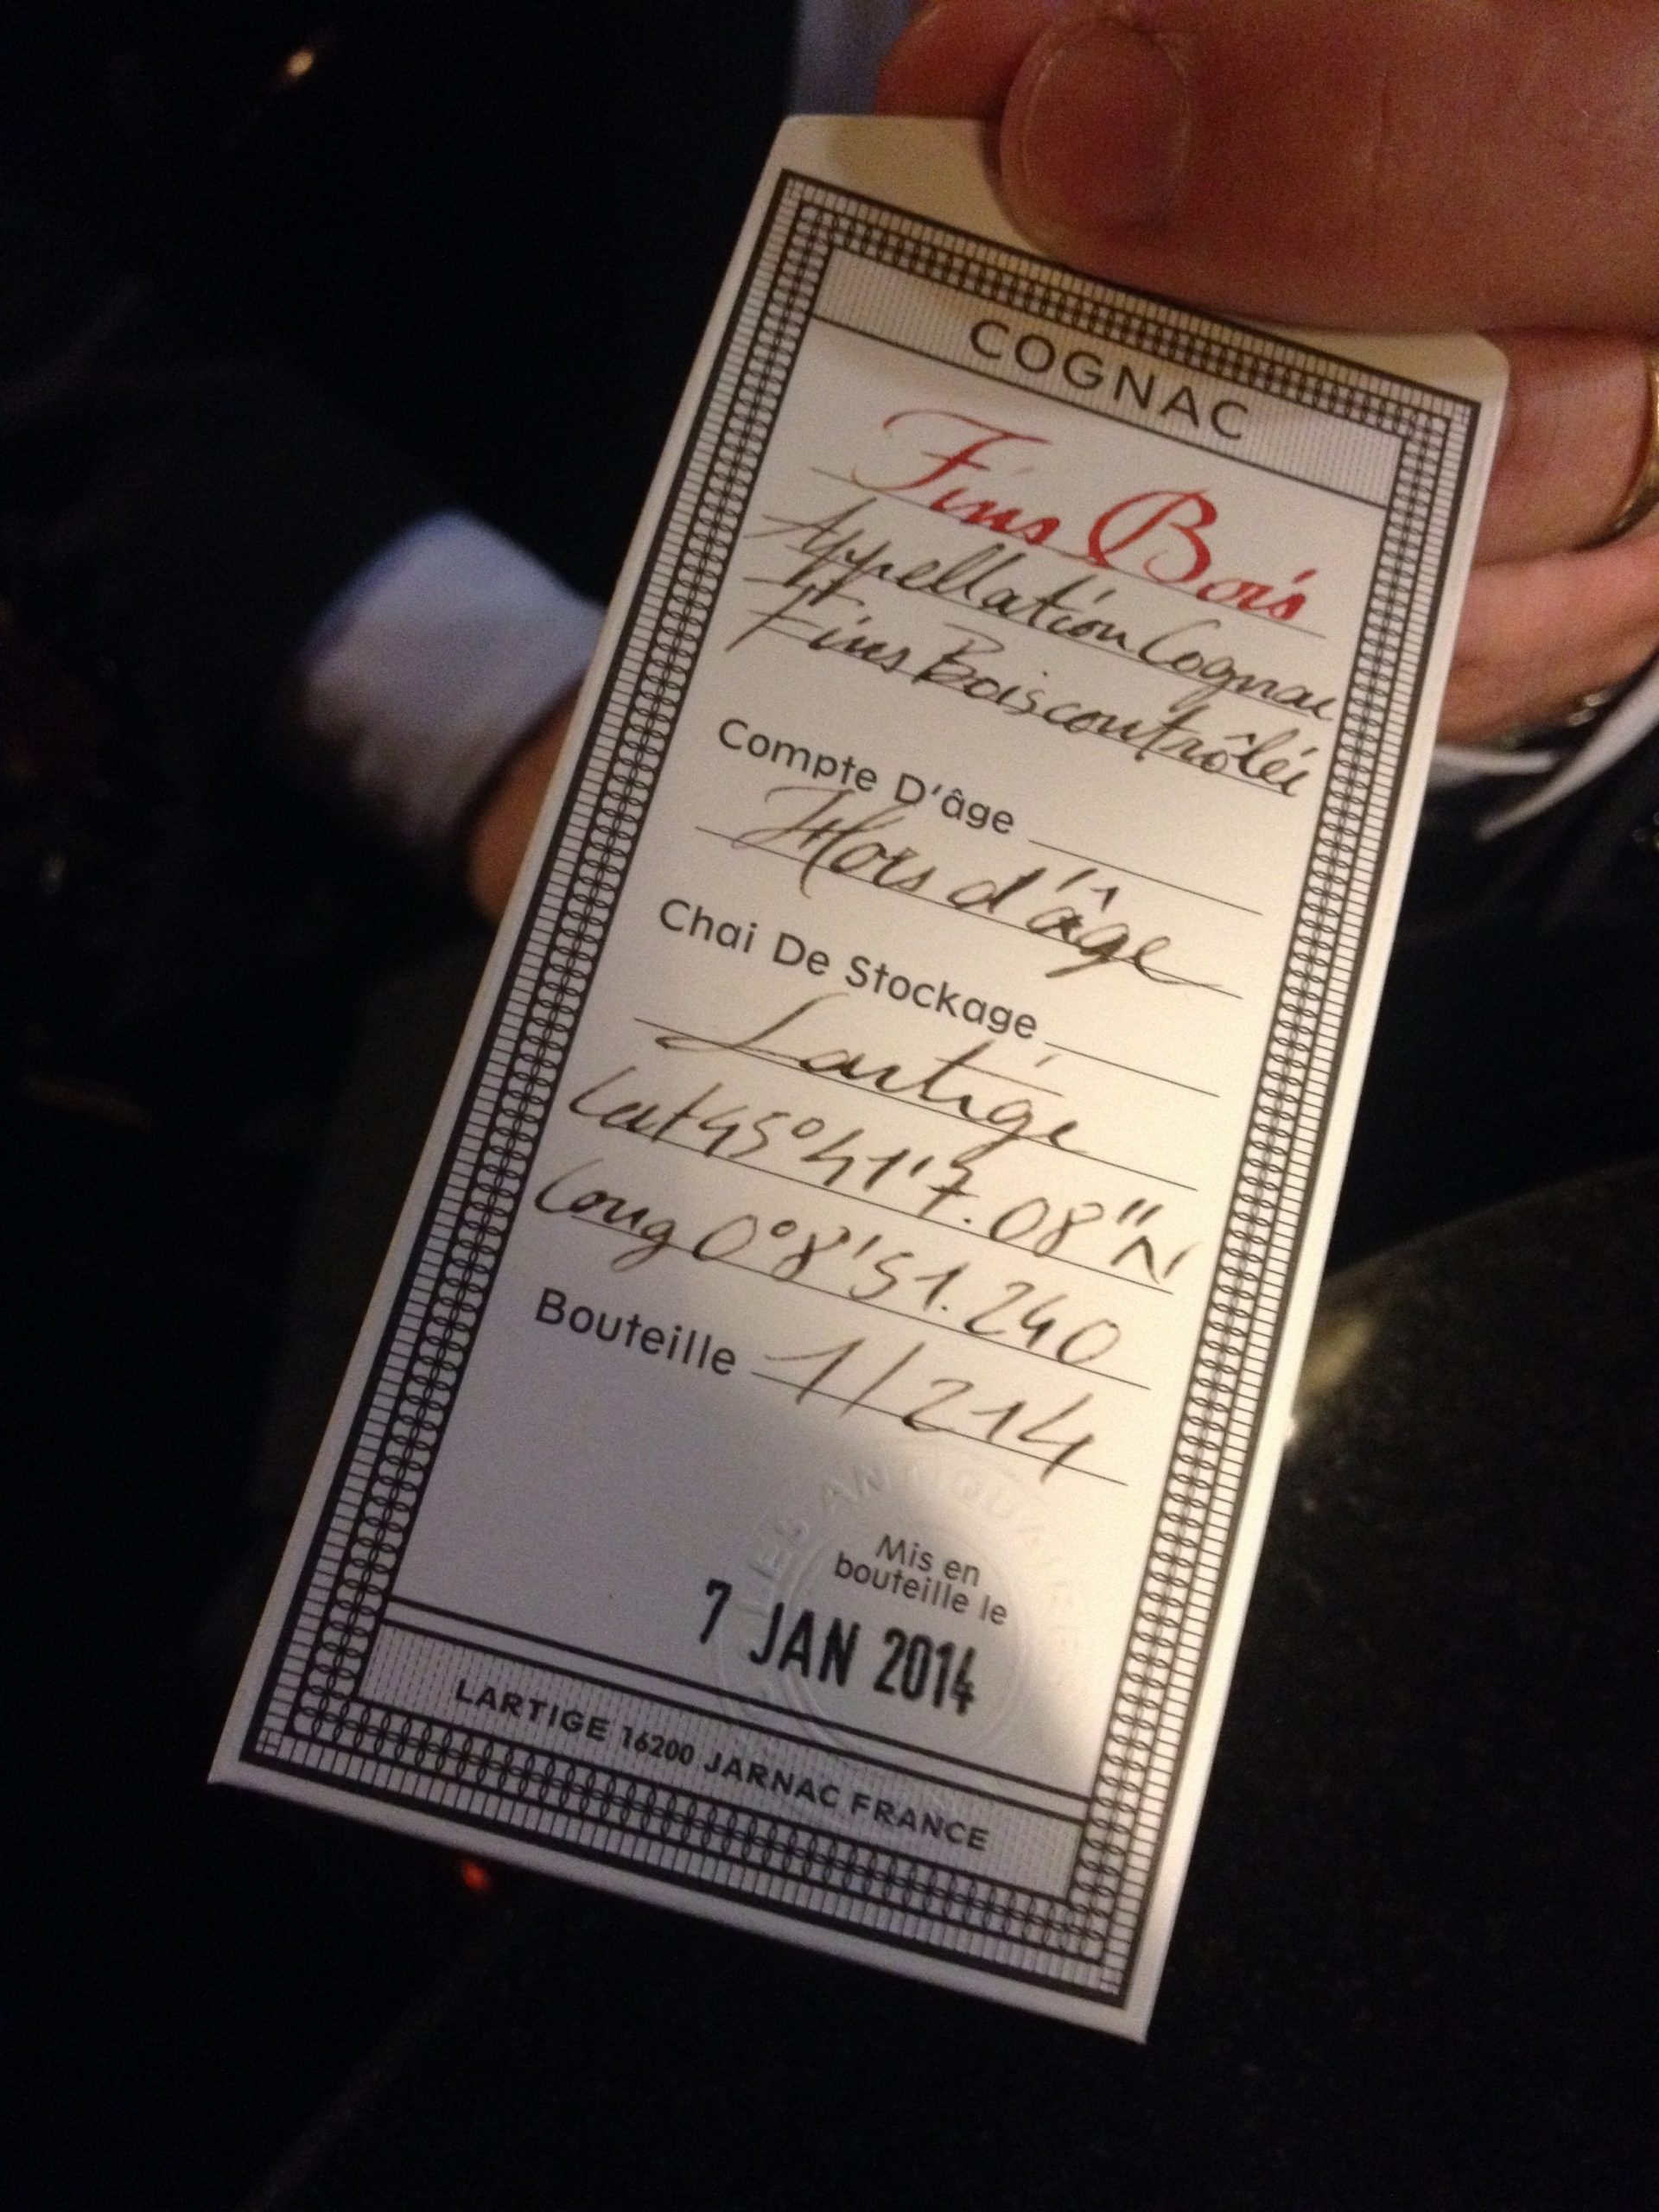 COGNAC
Fins Bois
Appellation Cognac
Fins Bois contrôlée
Compte D'âge
Hors d'âge
Chai De Stockage
Lartige
Lat 45° 41' 7.08" N
Long 0° 8' 51.240
Bouteille 1/214
LES ANTIQUAIRES
Mis en
bouteille le
7 JAN 2014
LARTIGE 16200 JARNAC FRANCE